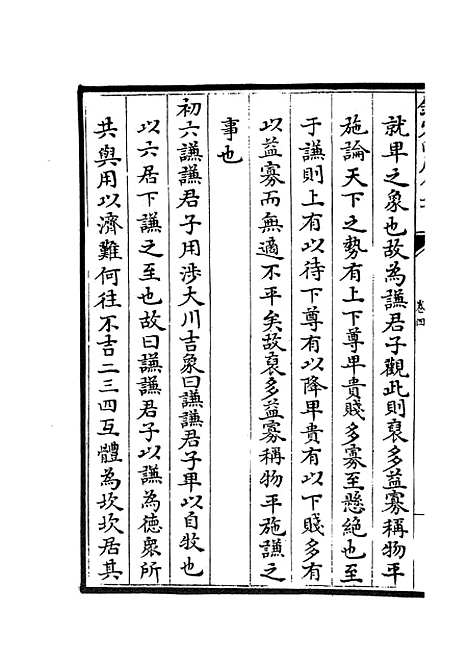 卷四
就卑之象也故為謙君子觀此則裒多益寡稱物平
施論天下之勢有上下尊卑貴賤多寡至懸絶也至
于謙則上有以待下尊有以降卑貴有以下賤多有
以益寡而無適不平矣故裒多益寡稱物平施謙之
事也
初六謙謙君子用涉大川吉象曰謙謙君子卑以自牧也
以六居下謙之至也故曰謙謙君子以謙為德衆所
共與用以濟難何往不吉二三四互體為坎坎居其